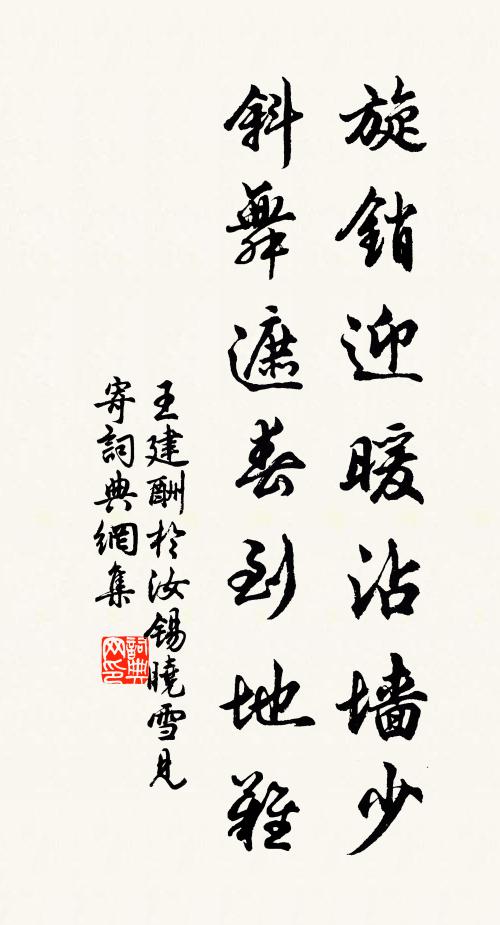 旋銷迎暖沾墙少
斜舞遮春到地難
王建酬於汝錫曉雪見
寄詞典網集
詞典
网印